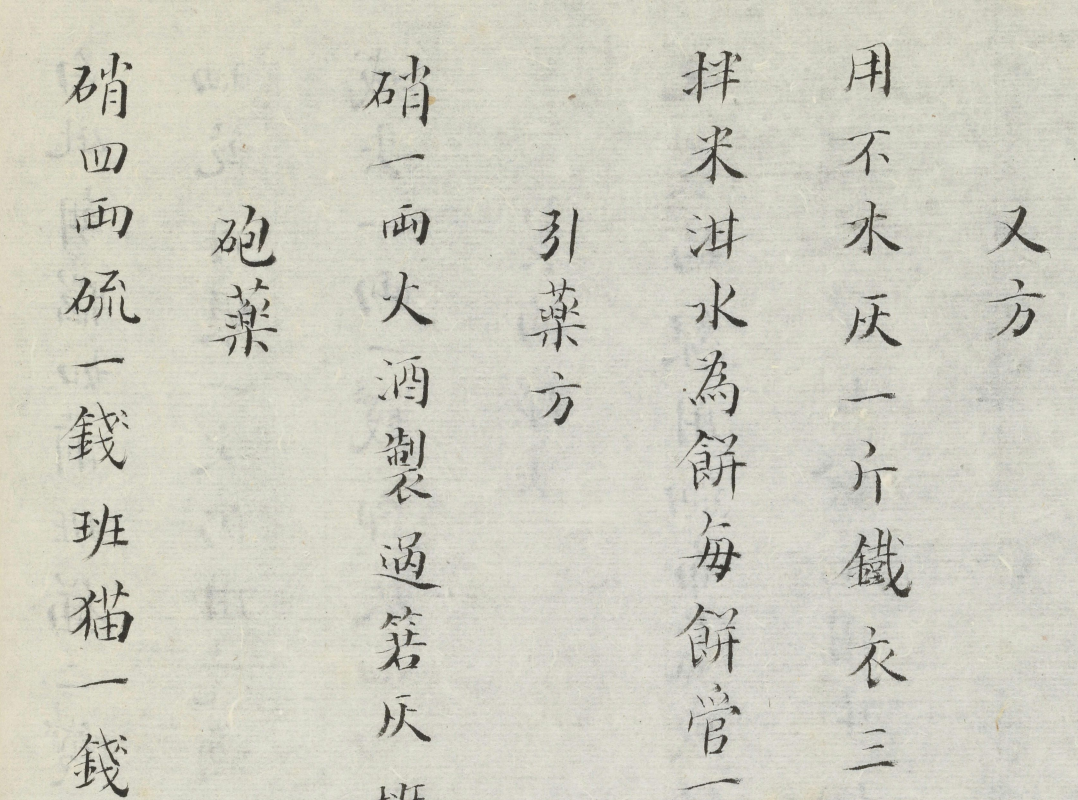 又方
用不木灰一斤鐵衣三
拌米泔水為餅每餅管一
引藥方
硝一兩火酒製過箬灰
砲藥
硝四兩硫一錢班猫一錢